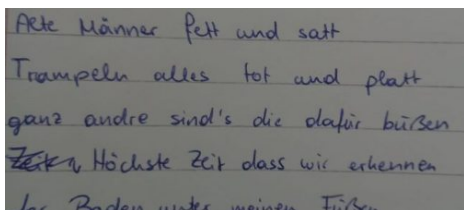 Alte Männer fett und satt
Trampeln alles tot und platt
ganz andre sind's die dafür büßen
Höchste Zeit dass wir erkennen
Boden unter meinen Füßen